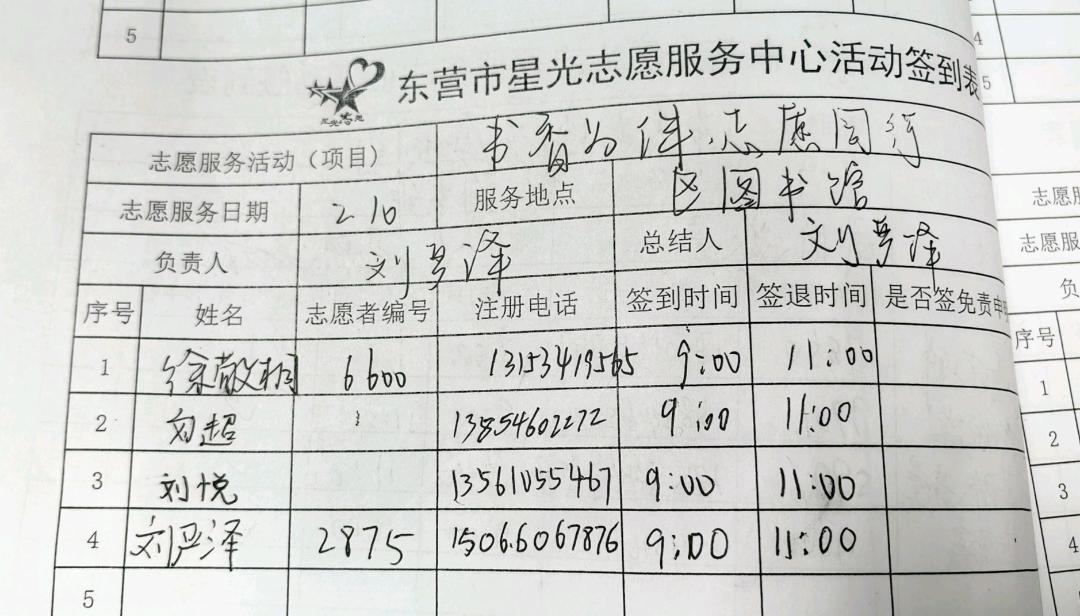 5
东营市星光志愿服务中心活动签到表
志愿服务活动（项目） 书香为伴 志愿同行
志愿服务日期 2 10 服务地点 区图书馆
负责人 刘严泽 总结人 刘严泽
序号 姓名 志愿者编号 注册电话 签到时间 签退时间 是否签免责申
1 徐敬桐 6600 13153419565 9:00 11:00
2 刘超 13854602272 9:00 11:00
3 刘悦 13561055467 9:00 11:00
4 刘严泽 2875 15066067876 9:00 11:00
5
4
5
志愿服
志愿服
负
序号
1
2
3
4